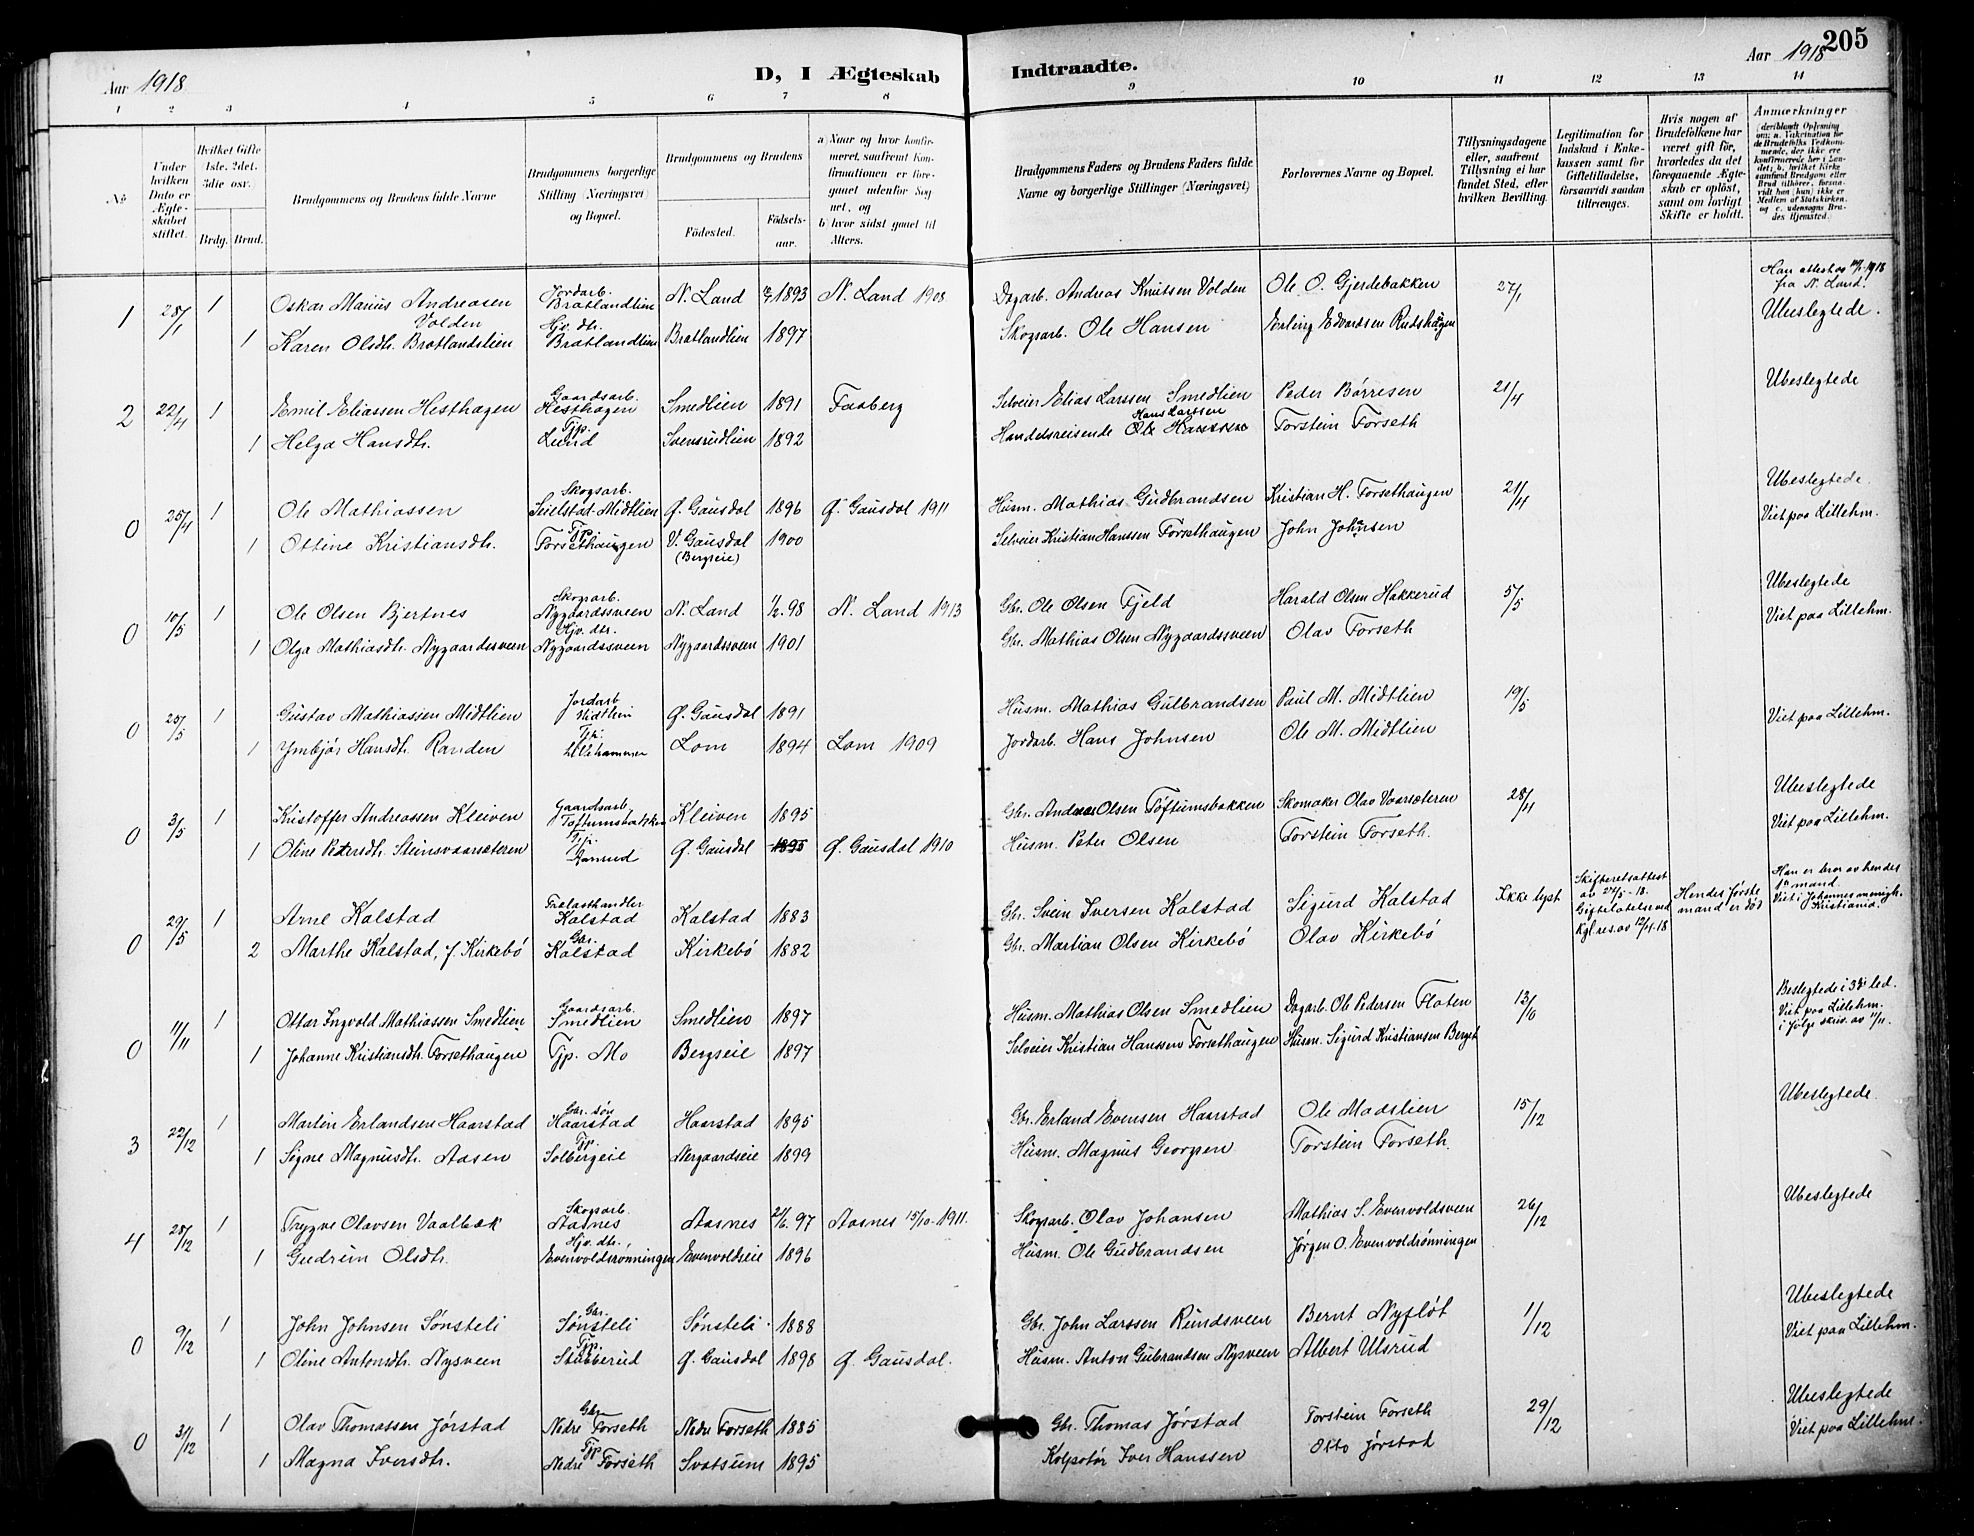 205
Aar 1918
D, I Ægteskab Indtraadte.
Aar 1918
1 2 3 4 5 6 7 8 9 10 11 12 13 14
No.
Under hvilken Dato er Ægteskabet stiftet.
Hvilket Gifte 1ste. 2det. 3die osv.)
Brdg. Brud.
Brudgommens og Brudens fulde Navne
Brudgommens borgerlige Stilling (Næringsvei) og Bopæl.
Brudgommens og Brudens
Fødested. Fødselsaar.
a) Naar og hvor konfirmeret, saafremt Konfirmationen er foregaaet udenfor Sognet, og
b) hvor sidst gaaet til Alters.
Brudgommens Faders og Brudens Faders fulde Navne og borgerlige Stillinger (Næringsvei)
Forlovernes Navne og Bopæl.
Tillysningsdagene eller, saafremt Tillysning ei har fundet Sted, efter hvilken Bevilling.
Legitimation for Indskud i Enkekassen samt for Giftetilladelse, forsaavidt saadan tiltrænges.
Hvis nogen af Brudefolkene har været gift før, hvorledes da det foregaaende Ægteskab er opløst, samt om lovligt Skifte er holdt.
Anmærkninger
(deriblandt Oplysning om: a. Vakcination for de Brudefolks Vedkommende, der ikke ere konfirmerede her i Landet; b. hvilket Kirke samfund Brudgom eller Brud tilhører, forsaavidt han (hun) ikke er Medlem af Statskirken, og c. udensogns Brudes Hjemsted.
1 28/1 1 Oskar Marius Andreasen Volden Jordarb. Bratlandlien N. Land 1893 N. Land 1908 Dagarb. Andreas Knutsen Volden Ole O. Gjerdebakken 27/1 Han attest av 1918 fra N. Land.
1 Karen Olsdtr. Bratlandslien Hjv. dtr. Bratlandlien Bratlandlien 1897 Skogsarb. Ole Hansen Erling Edvardsen Rudshaugen Ubeslegtede.
2 22/4 1 Emil Eliassen Hesthagen Gaardsarb. Hesthagen Smedlien 1891 Faaberg Selveier Elias Larssen Smedlien Peder Børresen 21/4 Ubeslegtede
1 Helga Hansdtr. Tjp. Lund Svensrudlien 1892 Handelsreisende Hans Larssen Torstein Forseth
0 25/4 1 Ole Mathiassen Skogsarb. Seielstad-Midtlien Ø. Gausdal 1896 Ø. Gausdal 1911 Husm. Mathias Gudbrandsen Kristian H. Forsethaugen 21/4 Ubeslegtede.
1 Ottine Kristiansdtr. Tjp. Forsethaugen V. Gausdal (Bergseie) 1900 Selveier Kristian Hanssen Forsethaugen John Johnsen Viet paa Lillehm.
0 10/5 1 Ole Olsen Bjertnes Skogsarb. Nygaardssveen N. Land 1/2. 98 N. Land 1913 Gbr. Ole Olsen Fjeld Harald Olsen Hakkerud 5/5 Ubeslegtede
1 Olga Mathiasdtr. Nygaardssveen Hjv. dtr. Nygaardssveen Nygaardssveen 1901 Gbr. Mathias Olsen Nygaardssveen Olav Forseth Viet paa Lillehm.
0 25/5 1 Gustav Mathiassen Midtlien Jordarb Midtlein Ø. Gausdal 1891 Husm. Mathias Gulbrandsen Paul M. Midtlien 19/5
1 Ymbjør Hansdtr. Randen Tjp. Lillehammer Lom 1894 Lom 1909 Jordarb. Hans Johnsen Ole M. Midtlien Viet paa Lillehm.
0 3/5 1 Kristoffer Andreassen Kleiven Gaardsarb. Toftumsbakken Kleiven 1895 Gbr. Andreas Olsen Tøftumsbakken Skomaker Olav Vaarsæteren 28/4 Ubeslegtede
1 Oline Petersdtr. Steinsvaarsæteren Tjp. Ø. Gausdal 1895 Ø. Gausdal 1910 Husm. Peter Olsen Torstein Forseth. Viet paa Lillehm.
0 29/5 1 Arne Kalstad Trælasthandler Kalstad Kalstad 1883 Gbr. Svein Iversen Kalstad Sigurd Kalstad Ikke lyst Skifteretsattest av 27/5-18. Giftelatelse ved kgl. res. av 12/4-18 Hendes første mand er død Han er bror av hendes 1ste mand. Viet i Johannes menigh. Kristiania.
2 Marthe Kalstad, f. Kirkebø Gbr. Kalstad Kirkebø 1882 Gbr. Martian Olsen Kirkebø Olav Kirkebø
0 11/11 1 Ottar Ingvold Mathiassen Smedlien Gaardsarb. Smedlien Smedlien 1897 Husm. Mathias Olsen Smedlien Dagarb. Ole Pedersen Floten 13/10 Beslegtede i 3dje led. Viet paa Lillehm. i følge skriv. av 11/11.
1 Johanne Kristiansdtr. Forsethaugen Tjp. Mo Bergseie 1897 Selveier Kristian Hanssen Forsethaugen Husm. Sigurd Kristiansen Berget
3 22/12 1 Martin Erlandsen Haarstad Gbr. søn Haarstad Haarstad 1895 Gbr. Erland Evensen Haarstad Ole Madslien 15/12 Ubeslegtede.
1 Signe Magnusdtr. Aasen Tjp. Solbergeie Nergaardseie 1899 Husm. Magnus Georgsen Torstein Forseth.
4 28/12 1 Trygve Olavsen Vaalbæk Skogsarb. Aasnes Aasnes 21/6. 97 Aasnes 15/10-1911. Skogsarb. Olav Johansen Mathias S. Evenvoldsveen 26/12 Ubeslegtede
1 Gudrun Olsdtr. Hjv. dtr. Evenvoldsrønningen Evenvoldseie 1896 Husm. Ole Gudbrandsen Jørgen O. Evenvoldrønningen
0 9/12 1 John Johnsen Sønsteli Gbr. Sønsteli Sønsteli 1888 Gbr. John Larssen Rundsveen Bernt Nyfløt 1/12 Ubeslegtede
1 Oline Antonsdtr. Nysveen Tjp. Stabberud Ø. Gausdal 1898 Ø. Gausdal. Husm. Anton Gulbrandsen Nysveen Albert Ulsrud Viet paa Lillehm.
0 31/12 1 Olav Thomassen Jørstad Gbr Nedre Forseth Nedre Forseth 1885 Gbr. Thomas Jørstad Torstein Forseth 29/12 Ubeslegtede
1 Magna Iversdtr. Tjp Nedre Forseth Svatsum 1895 Kolportør Iver Hanssen Otto Jørstad Viet paa Lillehm.